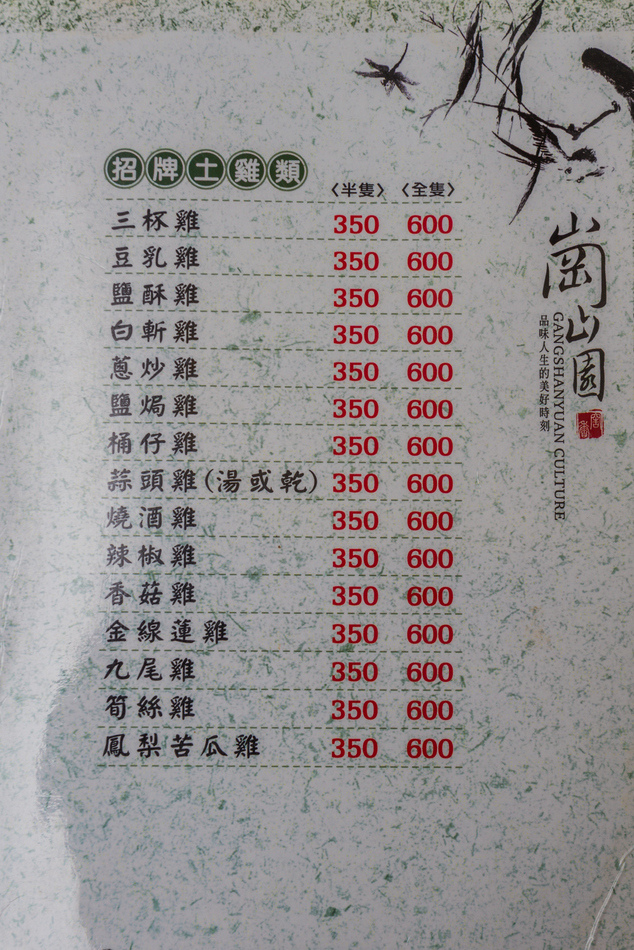 招牌土雞類
〈半隻〉〈全隻〉
三杯雞 350 600
豆乳雞 350 600
鹽酥雞 350 600
白斬雞 350 600
蔥炒雞 350 600
鹽焗雞 350 600
桶仔雞 350 600
蒜頭雞(湯或乾) 350 600
燒酒雞 350 600
辣椒雞 350 600
香菇雞 350 600
金線蓮雞 350 600
九尾雞 350 600
筍絲雞 350 600
鳳梨苦瓜雞 350 600
崗山園
GANGSHANYUAN CULTURE
品味人生的美好時刻